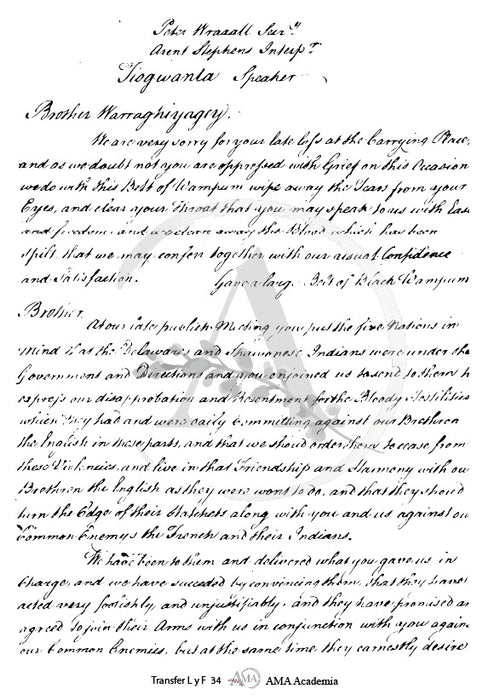 Peter Wraxall Secry
Arent Stephens Interpr
Tiogwanta Speaker
Brother Warraghiyagey.
We are very sorry for your late loss at the Carrying Place,
and as we doubt not you are oppressed with Grief on this Occasion
we do with this Belt of Wampum wipe away the Tears from your
Eyes, and clear your Throat that you may speak to us with Ease
and freedom, and we clear away the Blood which has been
spilt that we may confer together with our usual Confidence
and Satisfaction. Gave a large Belt of Black Wampum
Brother.
At our late publick Meeting you put the five Nations in
Mind that the Delawares and Shawanese Indians were under the
Government and Directions and now enjoined us to send to them to
express our disapprobation and Resentment for the Bloody Hostilities
which they had and were daily committing against our Brethren
the English in these parts, and that we should order them to cease from
these Violences, and live in that Friendship and Harmony with ou
Brethren the English as they were wont to do, and that they should
turn the Edge of their Hatchets along with you and us against ou
Common Enemys the French and their Indians.
We have been to them and delivered what you gave us in
Charge, and we have succeeded by convincing them, that they have
acted very foolishly and unjustifiably, and they have promised an
agreed to join their Arms with us in conjunction with you again
our Common Enemies, but at the same time they earnestly desire
Transfer L y F 34 AMA AMA Academia